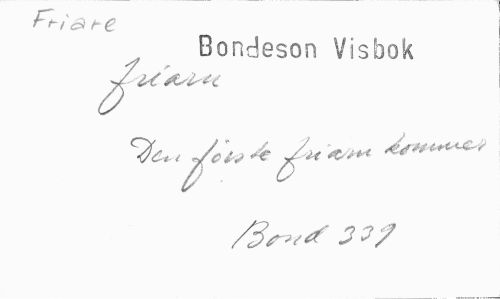 Friare
Bondeson Visbok
friarn
Den förste friarn kommer
Bond 339